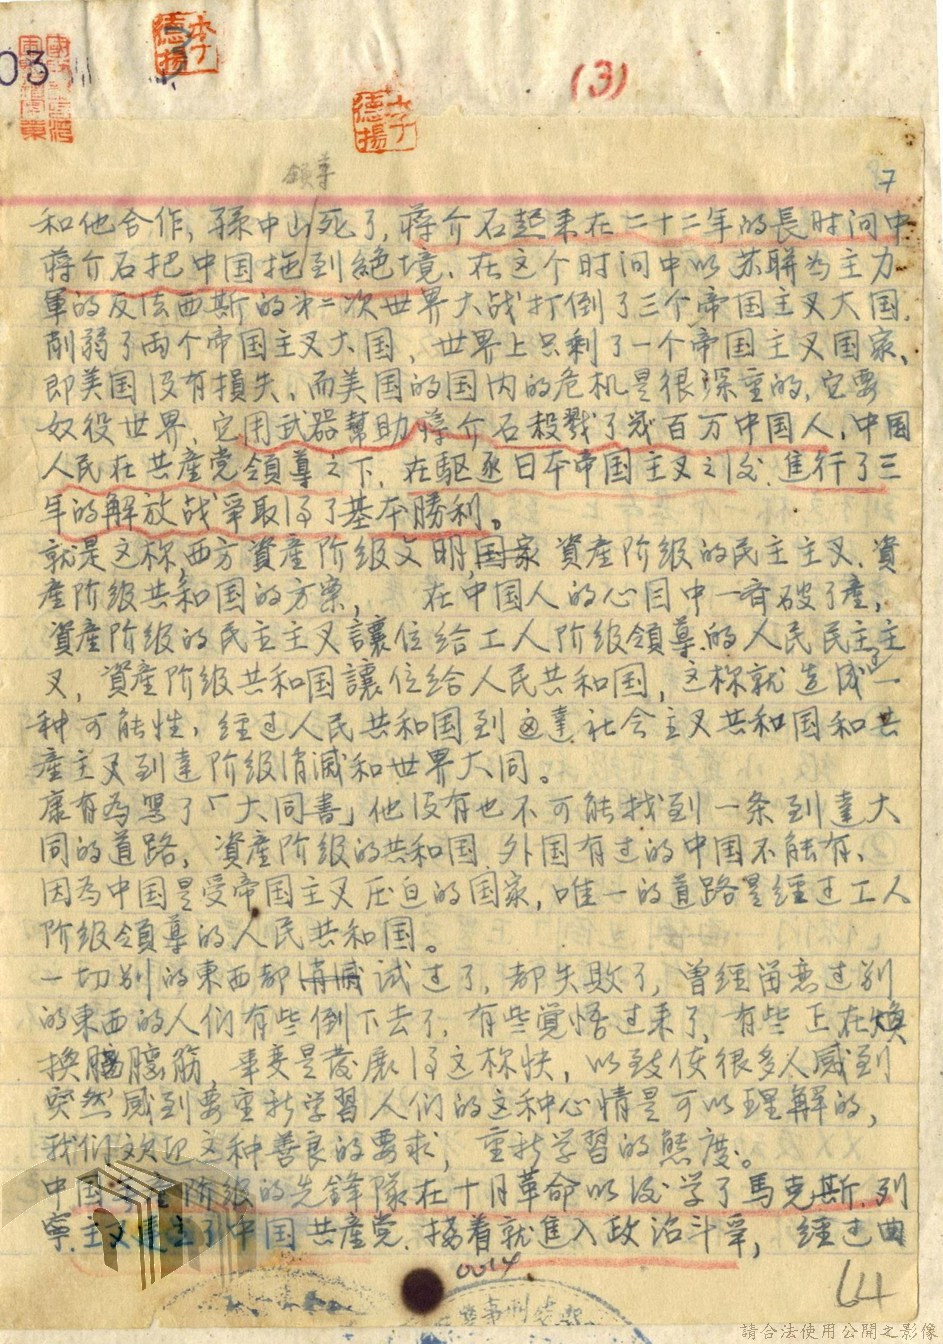 03
李德揚
(3)
李德揚
領导
7
和他合作,孫中山死了,蔣介石起来在二十二年的長时间中
蔣介石把中国拖到絕境.在这个时间中以苏联为主力
軍的反法西斯的第二次世界大战打倒了三个帝国主义大国.
削弱了两个帝国主义大国,世界上只剩了一个帝国主义国家、
即美国没有損失.而美国的国内的危机是很深重的,它要
奴役世界,它用武器幫助蔣介石殺戮了几百万中国人.中国
人民在共産党領導之下.在駆丞日本帝国主义之後.進行了三
年的解放战爭取得了基本勝利。
就是这样,西方資産阶级文明,国家資産阶级的民主主义.資
産阶级共和国的方案,在中国人的心目中一斉破了産,
資産阶级的民主主义讓位給工人阶级領導的人民民主主
义,資産阶级共和国讓位給人民共和国,这样就造成一
种可能性,経过人民共和国到达社会主义共和国和共
産主义到達阶级消滅和世界大同。
康有為写了「大同書」他没有也不可能找到一条到達大
同的道路,資産阶级的共和国.外国有过的中国不能有、
因為中国是受帝国主义压迫的国家,唯一的道路是経过工人
阶级領導的人民共和国。
一切别的東西都消滅试过了,都失敗了,曾経留恋过别
的東西的人们有些倒下去了,有些覚悟过来了,有些正在換
換腦筋,事变是發展得这样快,以致使很多人感到
突然感到要重新学習人们的这种心情是可以理解的,
我们欢迎这种善良的要求,重新学習的態度。
中国無産阶级的先鋒隊在十月革命以後学了馬克斯.列
寧.主义建立了中国共産党.接着就進入政治斗爭,経过曲
0014
64
請合法使用公開之影像